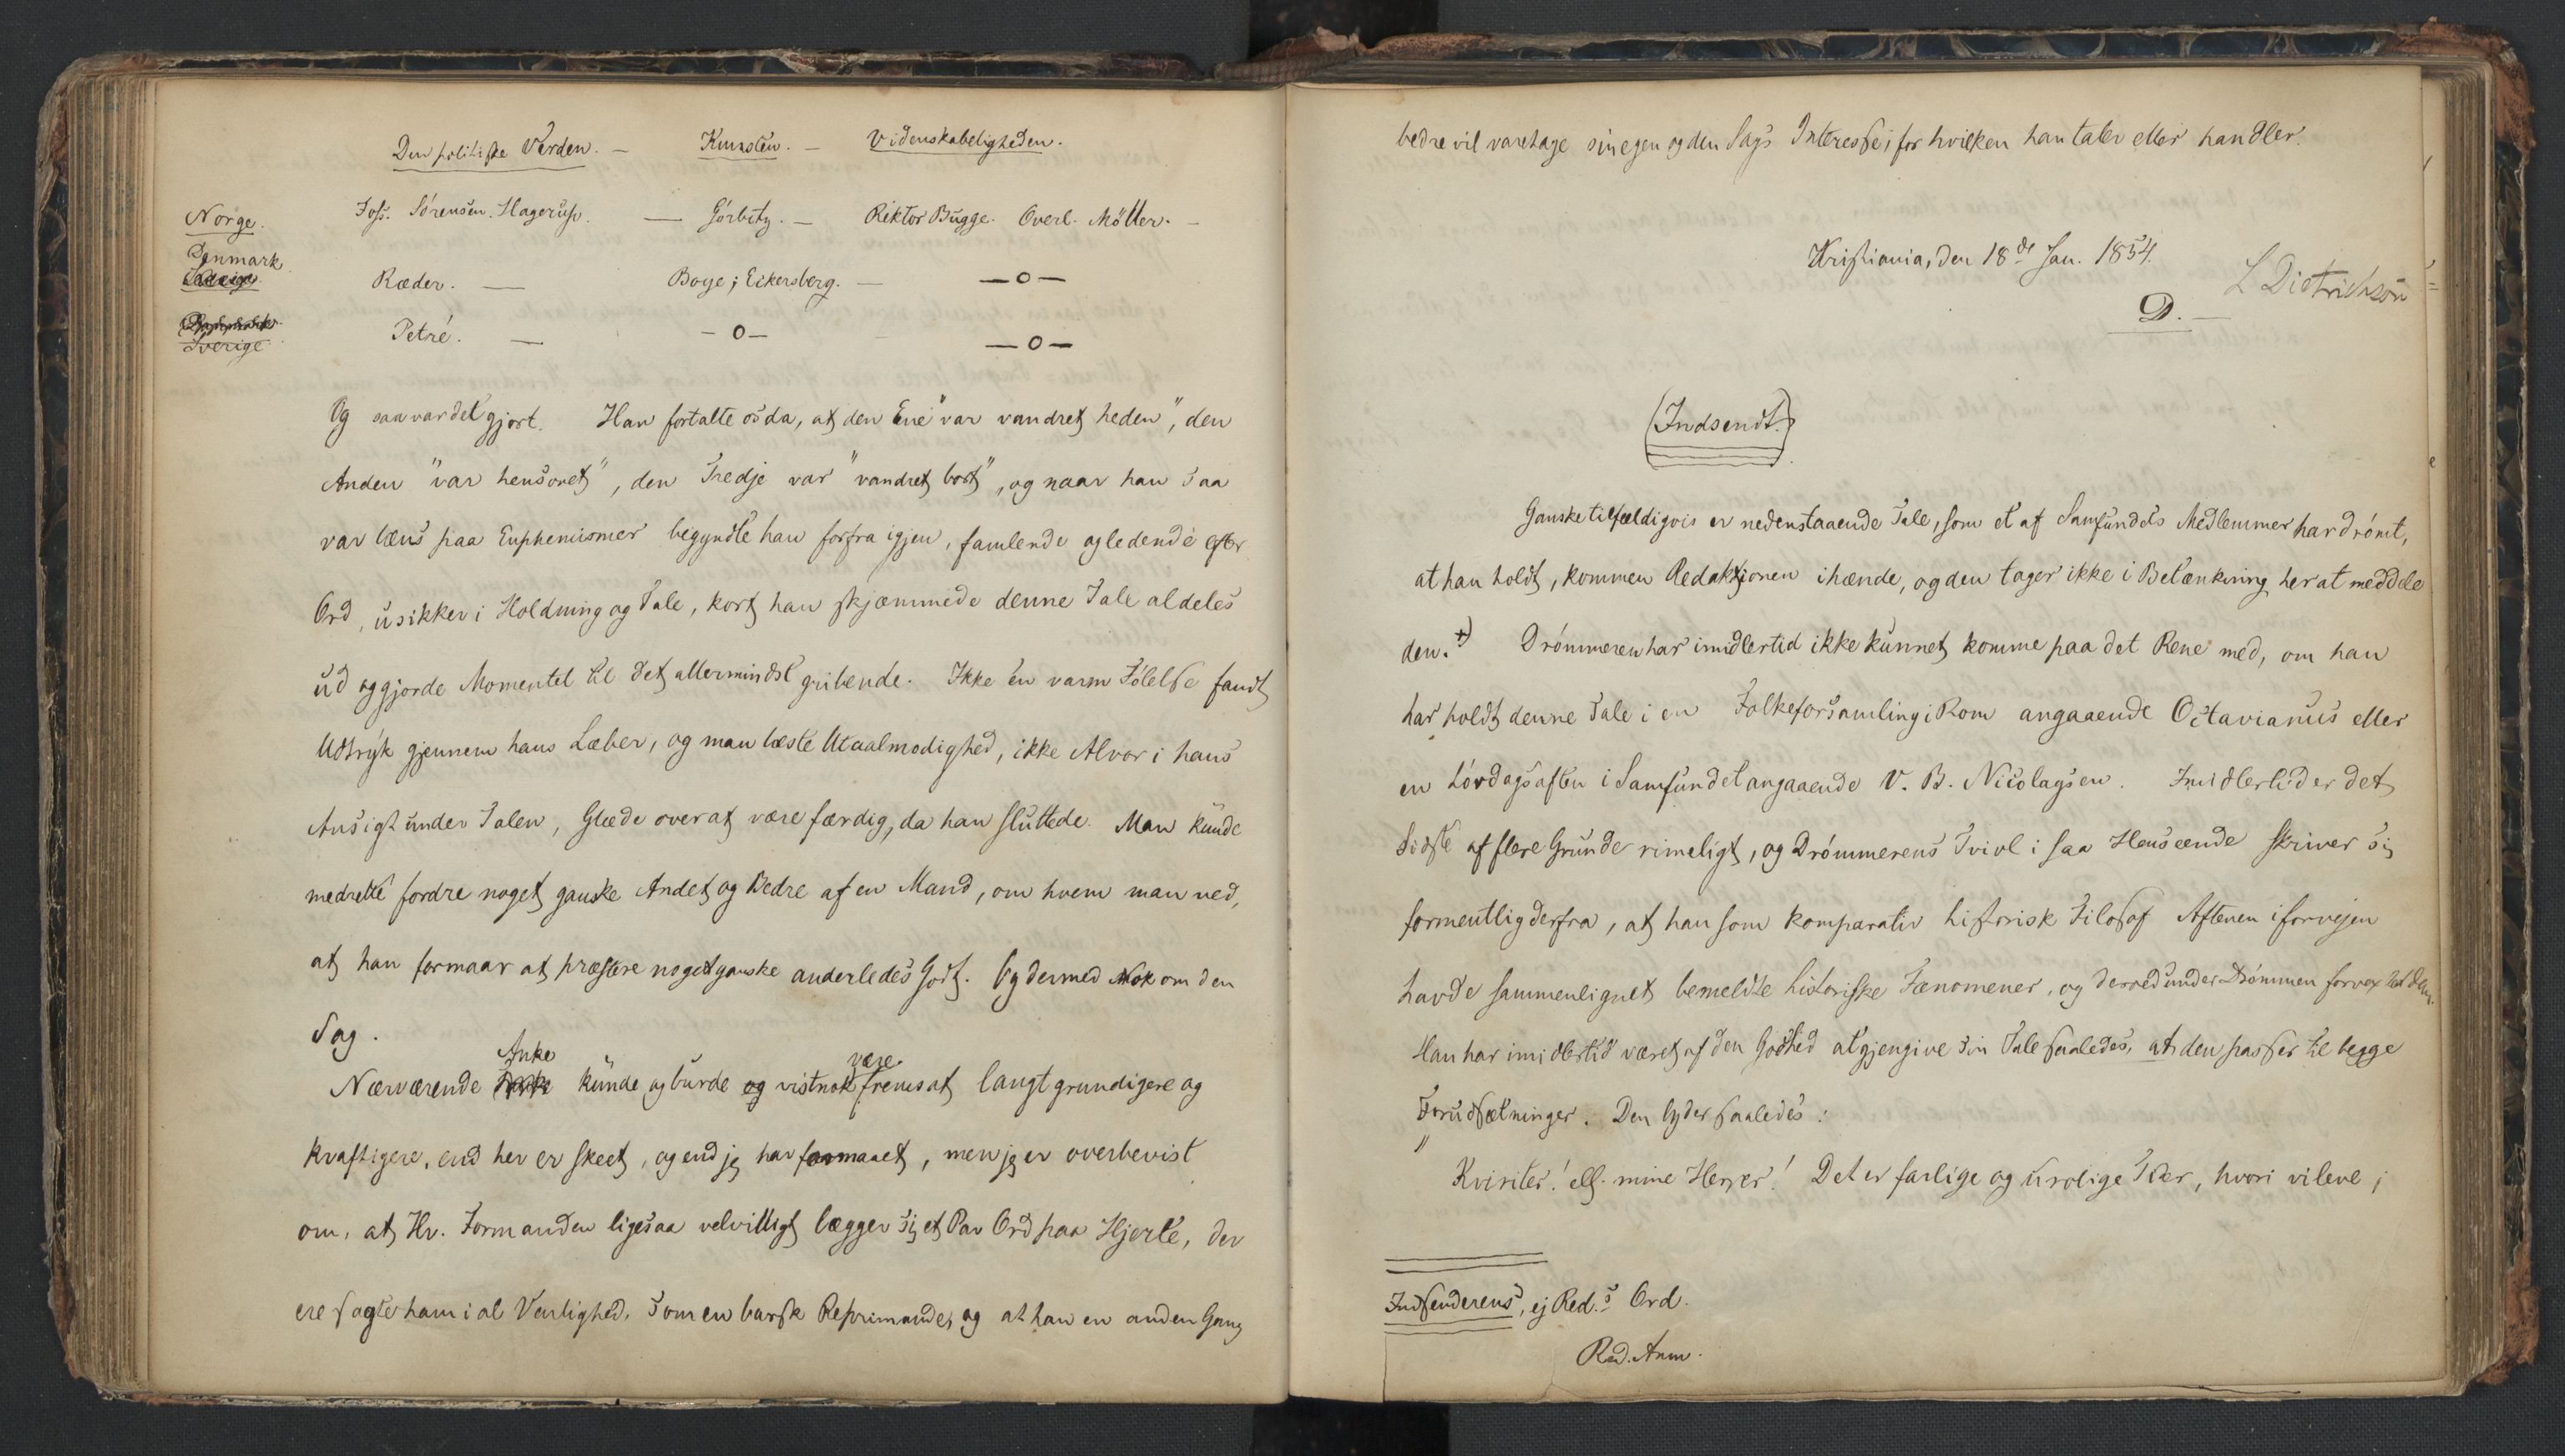 Den politiske Verden. — Kunsten. — Videnskabeligheden.
Norge. Joh. Sørensen. Hagerup. — Görbitz. — Rektor Bugge. Overl. Möller. —
Danmark
Sverige Ræder. — Boye; Eckersberg. — — o —
Danmark
Sverige Petré. — — o — — o —
Og saa var det gjort. Han fortalte os da, at den Ene "var vandret heden", den
Anden "var hensovet", den Tredje var "vandret bort", og naar han saa
var læns paa Euphemismer begyndte han forfra igjen, famlende og ledende efter
Ord, usikker i Holdning og Tale, kort han skjæmmede denne Tale aldeles
ud og gjorde Momentet til det allermindst gribende. Ikke en varm Følelse fandt
Udtryk gjennem hans Læber, og man læste Utaalmodighed, ikke Alvor i hans
Ansigt under Talen, Glæde over at være færdig, da han sluttede. Man kunde
medrette fordre noget ganske Andet og Bedre af en Mand, om hvem man ved,
at han formaar at præstere noget ganske anderledes Godt. Og dermed Nok om den
Sag.
Nærværende Anke kunde og burde og vistnok være fremsat langt grundigere og
kraftigere, end her er skeet, og end jeg har formaaet, men jeg er overbevist
om, at Hr. Formanden ligesaa velvilligt lægger sig et Par Ord paa Hjerte, der
ere sagte ham i al Venlighed, som en barsk Reprimande, og at han en anden Gang
bedre vil varetage sin egen og den Sags Interesse, for hvilken han taler eller handler.
Kristiania, den 18de Jan. 1854.
L Dietrichson
D. —
(Indsendt.)
Ganske tilfældigvis er nedenstaaende Tale, som et af Samfundets Medlemmer har drømt,
at han holdt, kommen Redaktjonen ihænde, og den tager ikke i Betænkning her at meddele
den. +) Drømmeren har imidlertid ikke kunnet komme paa det Rene med, om han
har holdt denne Tale i en Folkeforsamling i Rom angaaende Octavianus eller
en Lørdagsaften i Samfundet angaaende V. B. Nicolaysen. Imidlertid er det
Sidste af flere Grunde rimeligt, og Drømmerens Tvivl i saa Henseende skriver sig
formentlig derfra, at han som komparativ historisk Filosof Aftenen iforvejen
havde sammenlignet bemeldte historiske Fænomener, og derved under Drømmen forvexlet dem.
Han har imidlertid været af den Godhed at gjengive sin Tale saaledes, at den passer til begge
Forudsætninger. Den lyder saaledes:
"Kviriter! ell. mine Herrer! Det er farlige og urolige Tider, hvori vi leve;
Indsenderens, ej Red.s Ord.
Red. Anm.